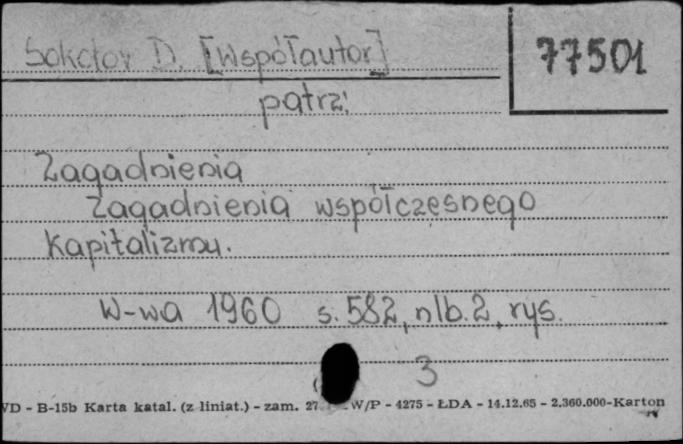 Sokołov D. [Współautor] 77501
patrz:
Zagadnienia
Zagadnienia współczesnego
kapitalizmu.
W-wa 1960 s. 582, nlb. 2, rys.
3
VD - B-15b Karta katal. (z liniat.) - zam. 27 W/P - 4275 - ŁDA - 14.12.65 - 2.360.000-Karton